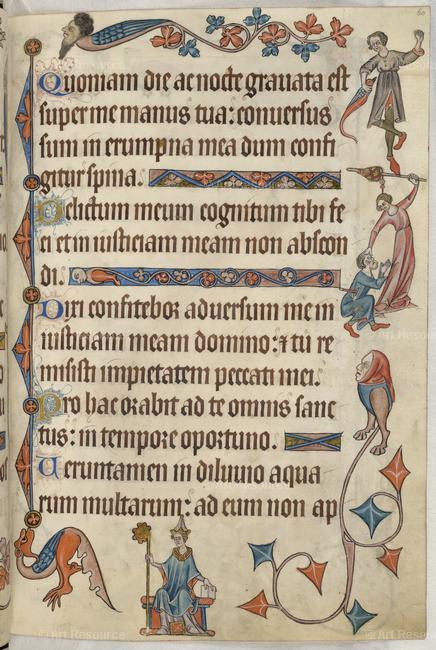 60
Quoniam die ac nocte grauata est
super me manus tua: conuersus
sum in erumpna mea dum confi
gitur spina.
Delictum meum cognitum tibi fe
ci et in iusticiam meam non abscon
di.
Dixi confitebor aduersum me in
iusticiam meam domino: ⁊ tu re
misisti impietatem peccati mei.
Pro hac orabit ad te omnis sanc
tus: in tempore oportuno.
Ueruntamen in diluuio aqua
rum multarum: ad eum non ap
© Art Resource
© Art Resource
© Art Resource
© Art Resource